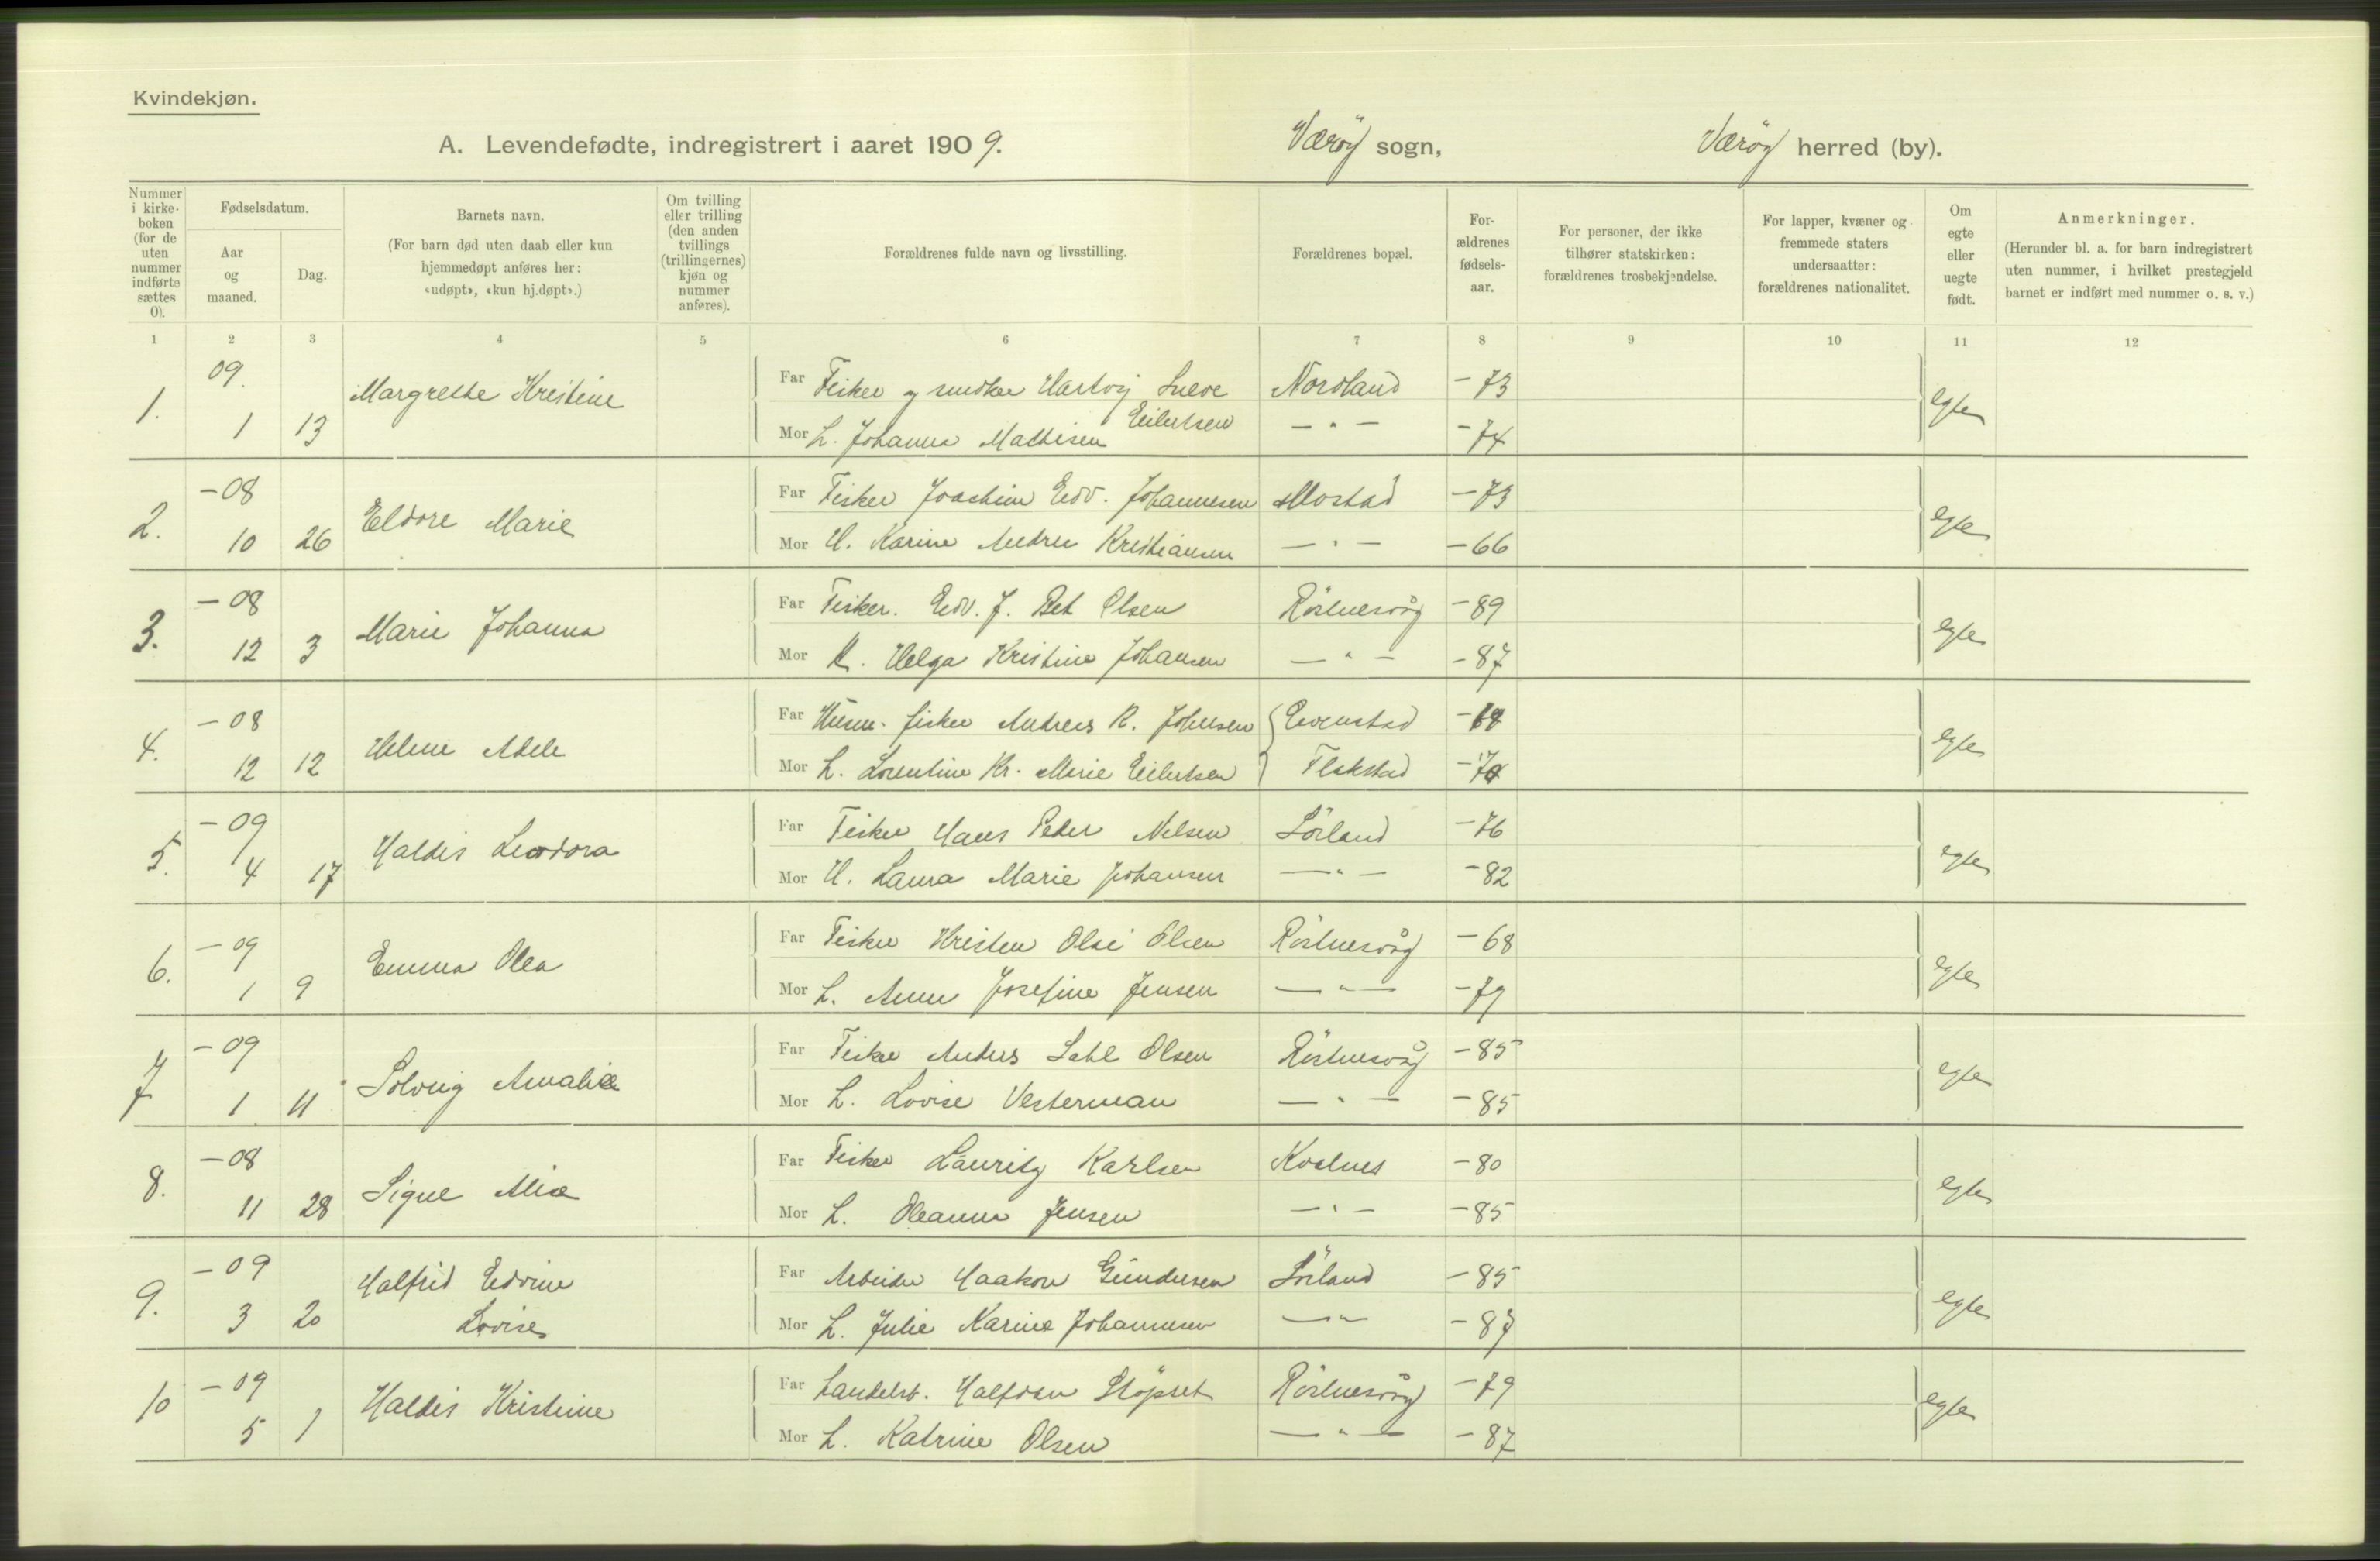 Kvindekjøn.
A. Levendefødte, indregistrert i aaret 1909. Væröy sogn, Væröy herred (by).
Nummer i kirkeboken (for de uten nummer indførte sættes 0).
Fødselsdatum.
Aar og maaned.
Dag.
Barnets navn.
(For barn død uten daab eller kun hjemmedøpt anføres her: «udøpt», «kun hj.døpt».)
Om tvilling eller trilling (den anden tvillings (trillingernes) kjøn og nummer anføres).
Forældrenes fulde navn og livsstilling.
Forældrenes bopæl.
Forældrenes fødselsaar.
For personer, der ikke tilhører statskirken: forældrenes trosbekjendelse.
For lapper, kvæner og fremmede staters undersaatter: forældrenes nationalitet.
Om egte eller uegte født.
Anmerkninger.
(Herunder bl. a. for barn indregistrert uten nummer, i hvilket prestegjeld barnet er indført med nummer o. s. v.)
1 2 3 4 5 6 7 8 9 10 11 12
1. 09. 1 13 Margrethe Kristine Far Fisker og snedker Hartvig Eilertsen Nordland -73 egte
Mor L. Johanna Mathisen — " — -74
2. -08 10 26 Eldore Marie Far Fisker Joachim Edv. Johannesen Mostad -73 egte
Mor H. Karine Andrea Kristiansen — " — -66
3. -08 12 3 Marie Johanna Far Fisker. Edv. J. Olsen Röstnesvåg -89 egte
Mor Helga Kristine Johansen — " — -87
4. -08 12 12 Helene Adele Far Husm. fisker Andreas R. Johnsen Evenstad egte
Mor L. Lorentine Kr. Marie Eilertsen Flakstad
5. -09 4 17 Haldis Leodora Far Fisker Hans Peder Nilsen Sörland -76 egte
Mor H. Laura Marie Johansen — " — -82
6. -09 1 9 Emma Olea Far Fisker Kristen Olai Olsen Röstnesvåg -68 egte
Mor L. Anna Josefine Jensen — " — -79
7 -09 1 11 Solveig Amalie Far Fisker Anders Olsen Röstnesvåg -85 egte
Mor L. Lovise Vesterman — " — -85
8. -08 11 28 Signe Far Fisker Lauritz Karlsen Kvalnes -80 egte
Mor L. Oleanna Jensen — " — -85
9. -09 3 20 Halfrid Edvine Far Arbeider Haakon Gundersen Sörland -85 egte
Lovise Mor L. Julie Karine Johannesen — " — -87
10 -09 5 1 Haldis Kristine Far Landelsb. Halfdan Röstnesvåg -79 egte
Mor L. Katrine Olsen — " — -87